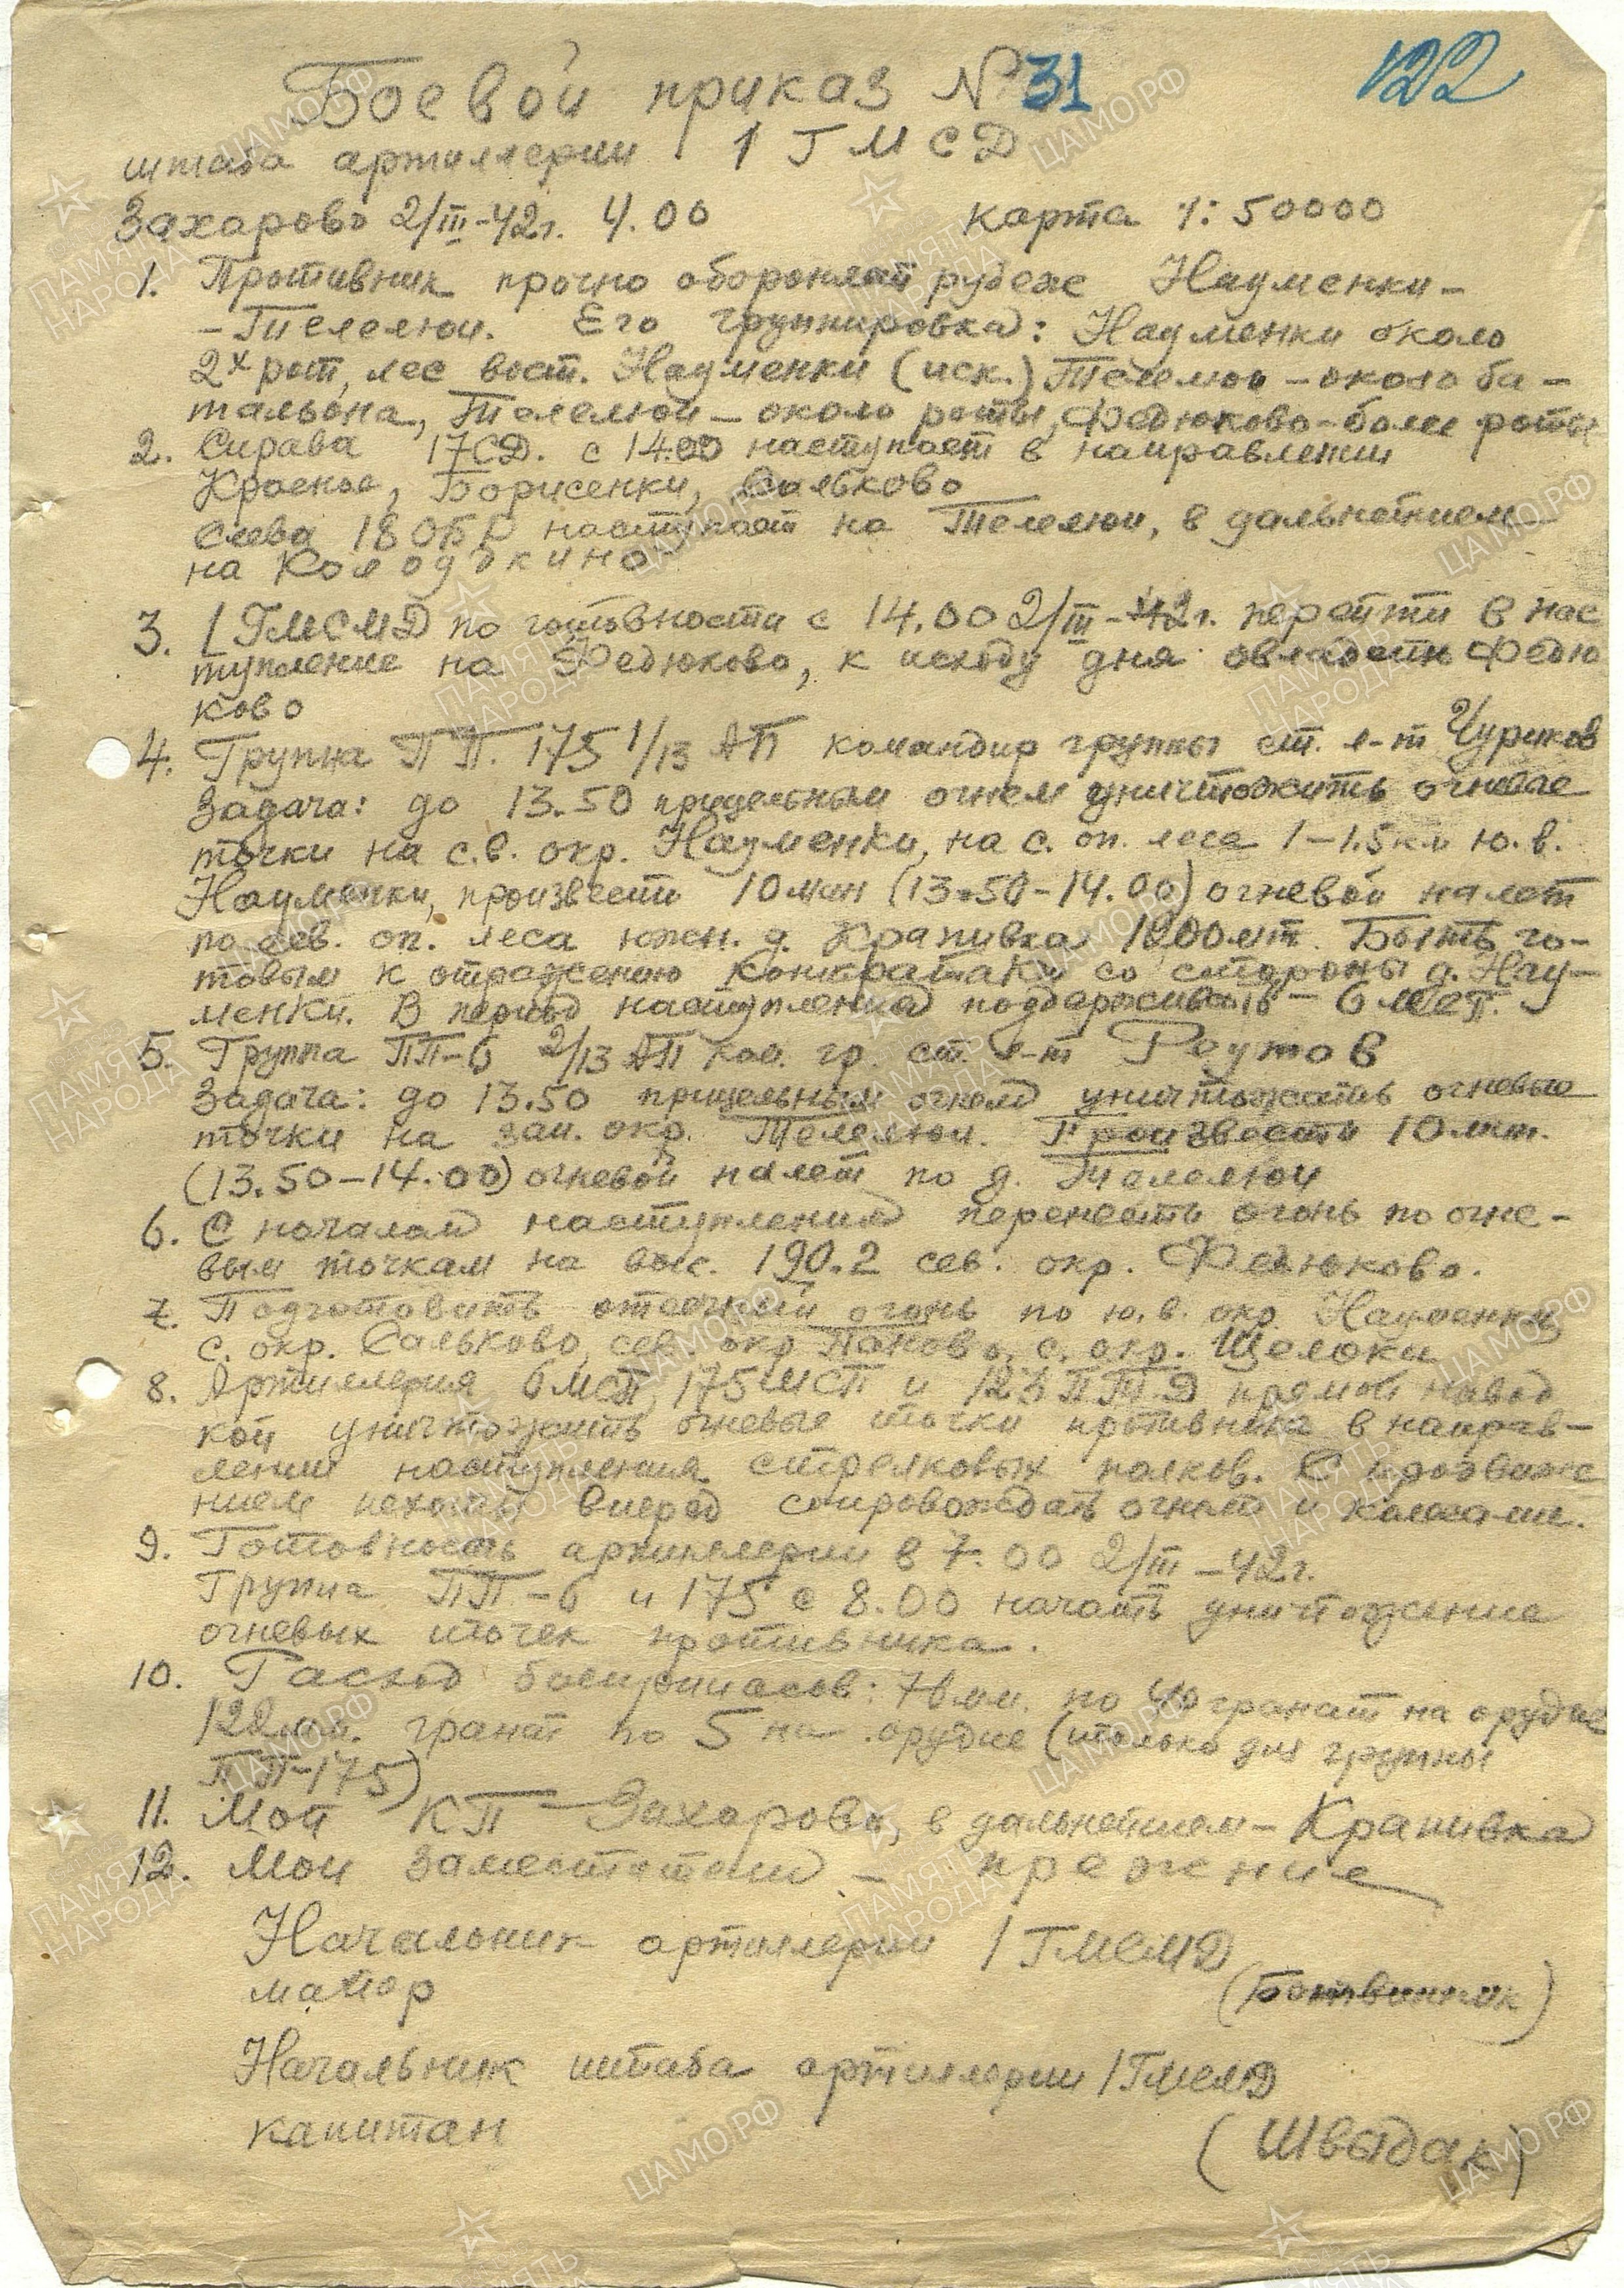 122
Боевой приказ № 31
штаба артиллерии 1 ГМСД
Захарово 2/III-42г. 4.00 карта 1:50000
1. Противник прочно обороняет рубеж Науменки-
-Телелюи. Его группировка: Науменки около
2х рот, лес вост. Науменки (иск.) Телелюи - около ба-
тальона, Телелюи - около роты, Федюково - более роты
2. Справа 17СД. с 14.00 наступает в направлении
Красное, Борисенки, Сальково
Слева 18 ОБР наступает на Телелюи, в дальнейшем
на Колодкино
3. 1 ГМСМД по готовности с 14.00 2/III-42г. перейти в нас
тупление на Федюково, к исходу дня овладеть Федю
ково
4. Группа ПП. 175 1/13 АП командир группы ст. л-т Чуриков
Задача: до 13.50 прицельным огнем уничтожить огневые
точки на с.в. окр. Науменки, на с. оп. леса 1-1.5 км ю.в.
Науменки, произвести 10 мин (13.50-14.00) огневой налет
по сев. оп. леса южн. д. Крапивка 1200 мт. Быть го-
товым к отражению контратаки со стороны д. Нау-
менки. В период наступления поддерживать - 6 мсп.
5. Группа ПП-6 2/13 АП ком. гр. ст. л-т Реутов
Задача: до 13.50 прицельным огнем уничтожать огневые
точки на зап. окр. Телелюи. Произвести 10 мин.
(13.50-14.00) огневой налет по д. Телелюи
6. С началом наступления перенести огонь по огне-
вым точкам на выс. 190.2 сев. окр. Федюково.
7. Подготовить отсечный огонь по ю.в. окр. Науменки
с. окр. Сальково, сев. окр Паново, с. окр. Щелоки
8. Артиллерия 6 МСП, 175 МСП и 123 ПТД прямой навод
кой уничтожить огневые точки противника в направ-
лении наступления стрелковых полков. С продвиже
нием пехоты вперед сопровождать огнем и колесами.
9. Готовность артиллерии в 7.00 2/III-42г.
Группа ПП-6 и 175 с 8.00 начать уничтожение
огневых точек противника.
10. Расход боеприпасов: 76 мм. по 40 гранат на орудие
122 мм. гранат по 5 на орудие (только для группы
ПП-175)
11. Мой КП - Захарово, в дальнейшем - Крапивка
12. Мои заместители - прежние
Начальник артиллерии 1 ГМСМД
майор (Ботвинник)
Начальник штаба артиллерии 1 ГМСМД
капитан
(Швыдак)